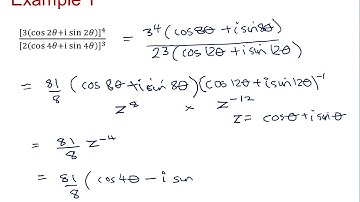 Example 1
[3(cos 2θ+i sin 2θ)]⁴ / [2(cos 4θ+i sin 4θ)]³ = 3⁴(cos8θ+isin8θ) / 2³(cos12θ+isin12θ)
= 81/8 (cos8θ+isin8θ)(cos12θ+isin12θ)⁻¹
z⁸ × z⁻¹²
z= cosθ+isinθ
= 81/8 z⁻⁴
= 81/8 (cos4θ - i sin